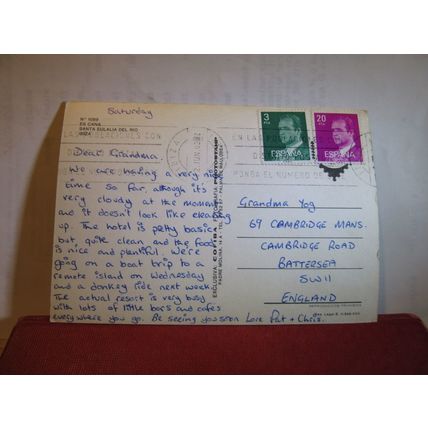 Saturday
N° 1089
ES CANA
SANTA EULALIA DEL RIO
IBIZA
Dear Grandma.
We are having a very nice
time so far, although it's
very cloudy at the moment
and it doesn't look like clearing
up. The hotel is pretty basic
but, quite clean and the food
is nice and plentiful. We're
going on a boat trip to a
remote island on Wednesday
and a donkey ride next week.
The actual resort is very busy
with lots of little bars and cafes
everywhere you go. Be seeing you soon Love Pat + Chris.
EXCLUSIVA
PADRE MOLINA
3 PTA
ESPAÑA
20 PTA
ESPAÑA
IBIZA
JUN
EN LAS POBLACIONES CON
PONGA EL NUMERO DE
Grandma Yog
69 CAMBRIDGE MANS.
CAMBRIDGE ROAD
BATTERSEA
SW11
ENGLAND